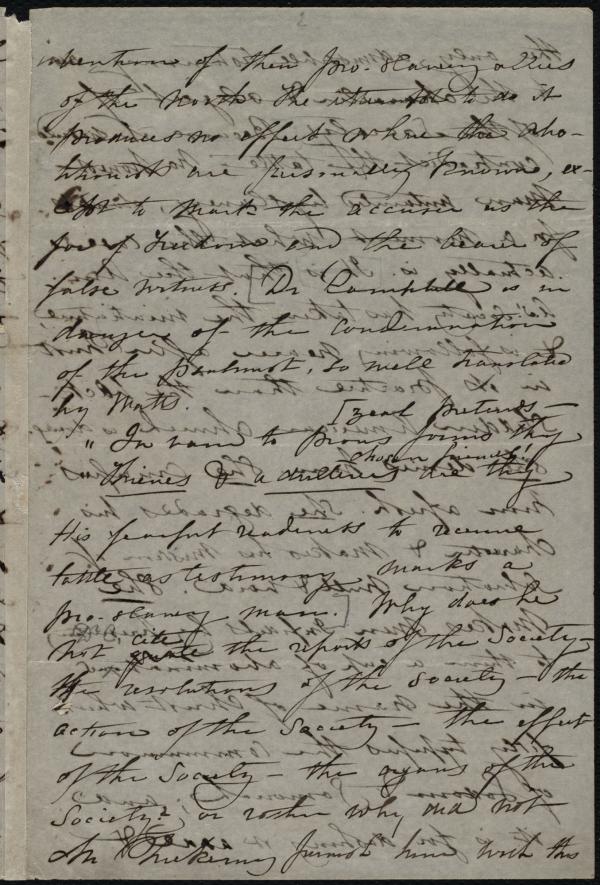 2
invention of their Pro-slavery allies
of the north. The attempt to do it
produces no effect where the abo-
litionists are personally known, ex-
cept to mark the accuser as the
foe of Freedom and the bearer of
false witness. [Dr Campbell is in
danger of the condemnation
of the psalmist, so well translated
by Watts. [zeal pretends—
"In vain to pious forms thy
Thieves & adulterers are thy chosen friends!"
His fearful readiness to receive
tattle as testimony marks a
pro-slavery man.] Why does he
not cite the reports of the Society—
the resolutions of the society—the
action of the Society—the effect
of the Society—the organs of the
Society? or rather why did not
Mr Pickering furnish him with this